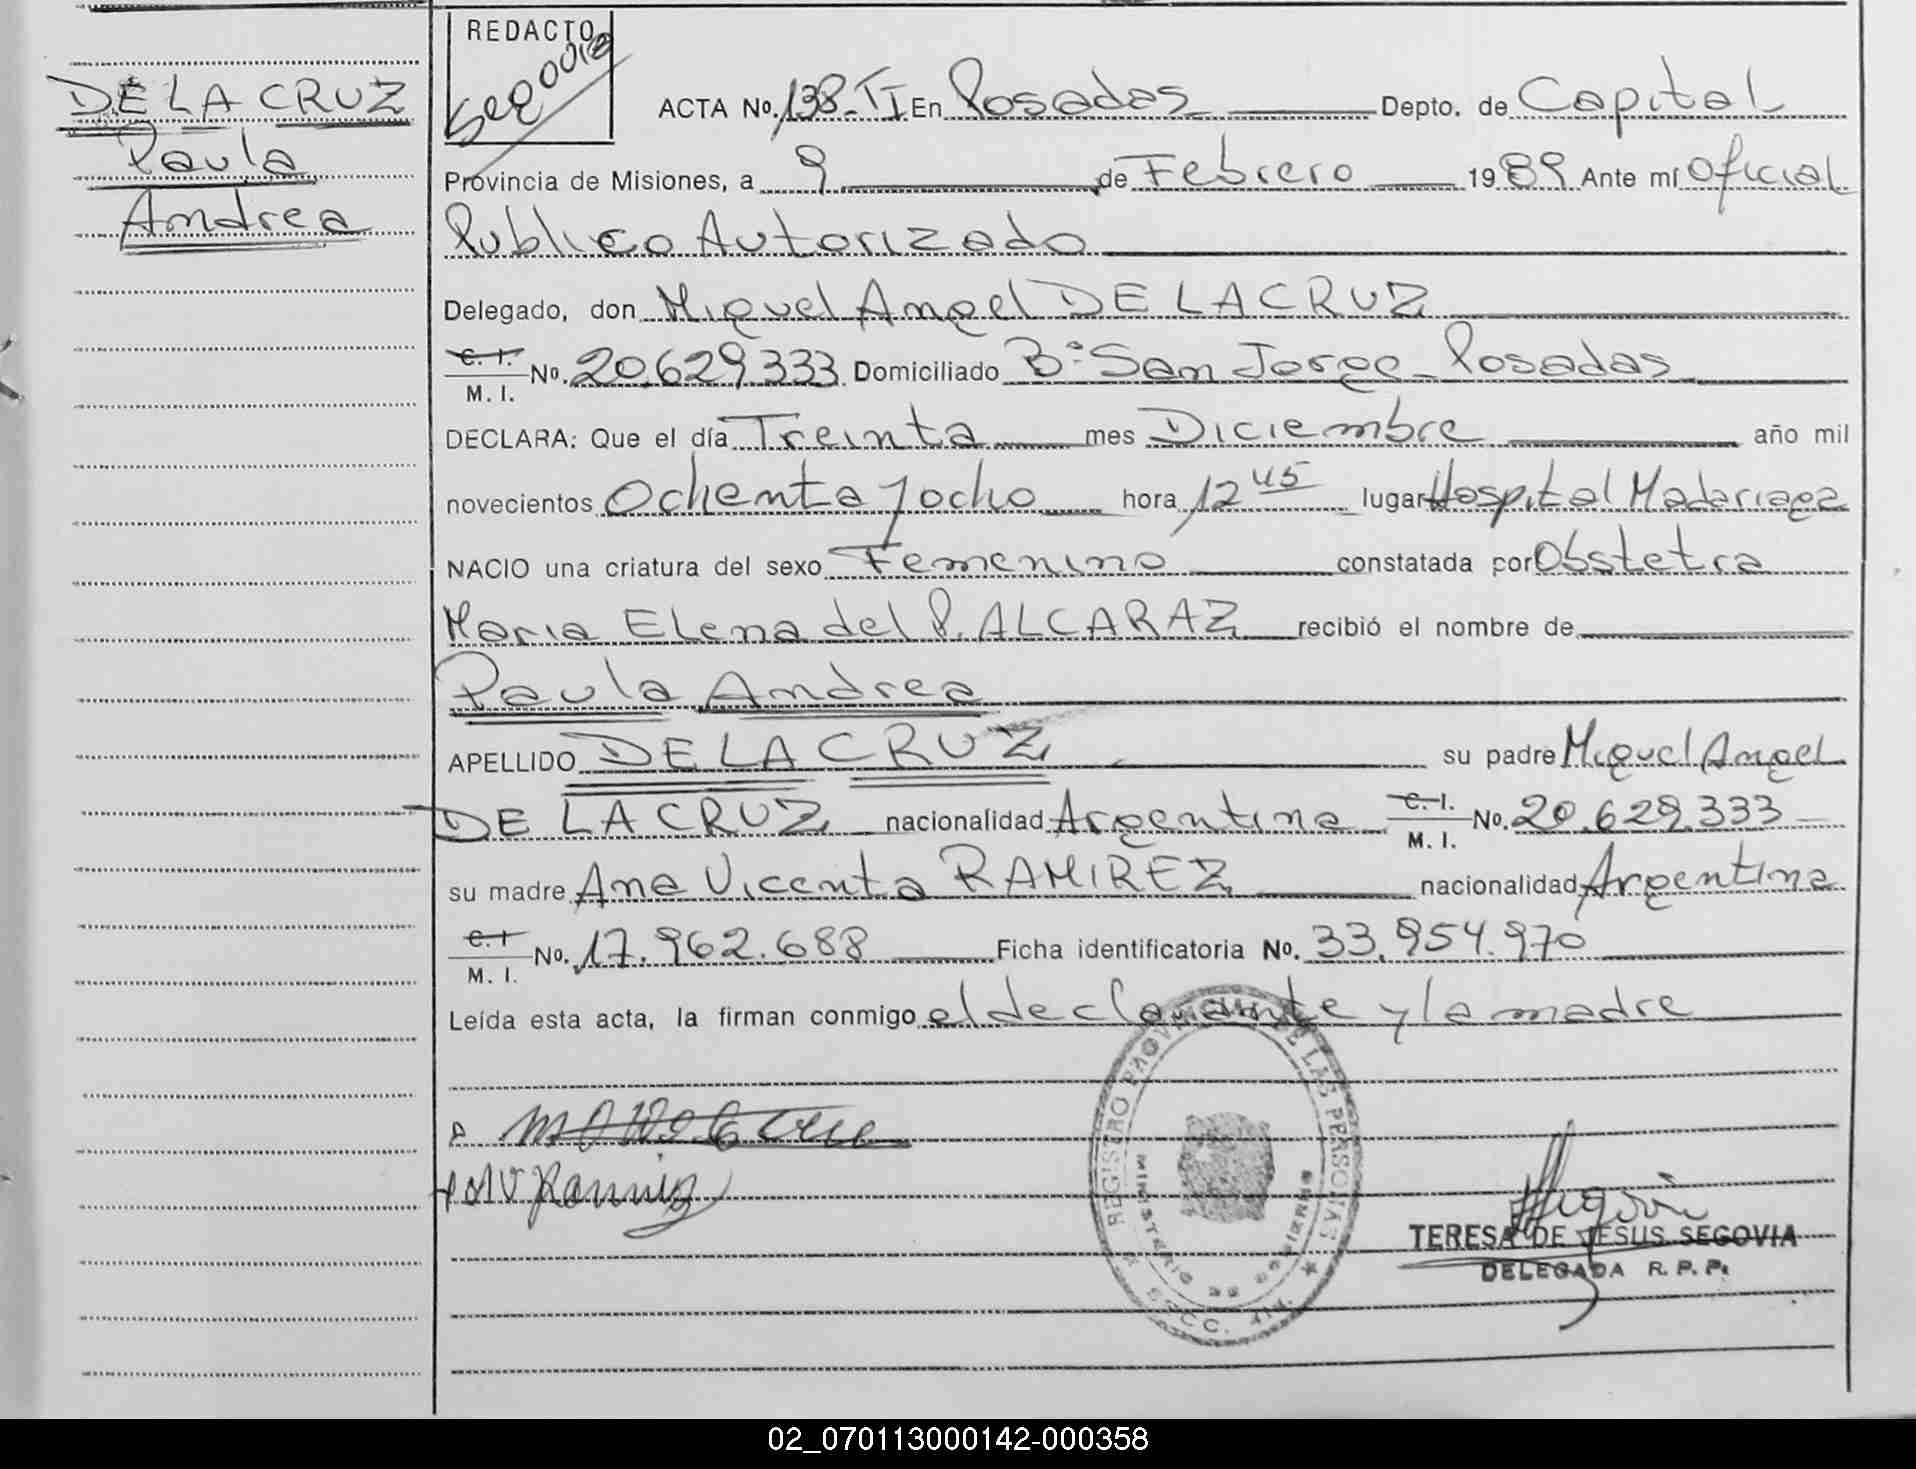 DE LA CRUZ
Paula
Andrea
REDACTO
Segovia
ACTA Nº. 138-TI En Posadas Depto. de Capital
Provincia de Misiones, a 9 de Febrero 1989 Ante mí Oficial
Publico Autorizado
Delegado, don Miguel Angel DE LA CRUZ
C. I. M. I. Nº. 20.629.333 Domiciliado Bº San Jorge - Posadas
DECLARA: Que el día Treinta mes Diciembre año mil
novecientos Ochenta y ocho hora 12 45 lugar Hospital Madariaga
NACIO una criatura del sexo Femenino constatada por Obstetra
Maria Elena del P. ALCARAZ recibió el nombre de
Paula Andrea
APELLIDO DE LA CRUZ su padre Miguel Angel
DE LA CRUZ nacionalidad Argentina C. I. M. I. Nº. 20.629.333
su madre Ana Vicenta RAMIREZ nacionalidad Argentina
C. I M. I. Nº. 17.962.688 Ficha identificatoria Nº. 33.954.970
Leída esta acta, la firman conmigo el declarante y la madre
REGISTRO PROVINCIAL DE LAS PERSONAS
MINISTERIO DE GOBIERNO
AV Ramirez
TERESA DE JESUS SEGOVIA
DELEGADA R. P. P.
02_070113000142-000358